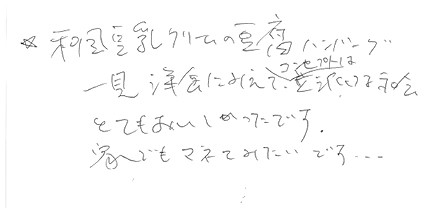 ☆ 和風豆乳クリームの豆腐ハンバーグ
一見 洋食にみえて、コンセプトは
とてもおいしかったです.
家でもマネてみたいです...